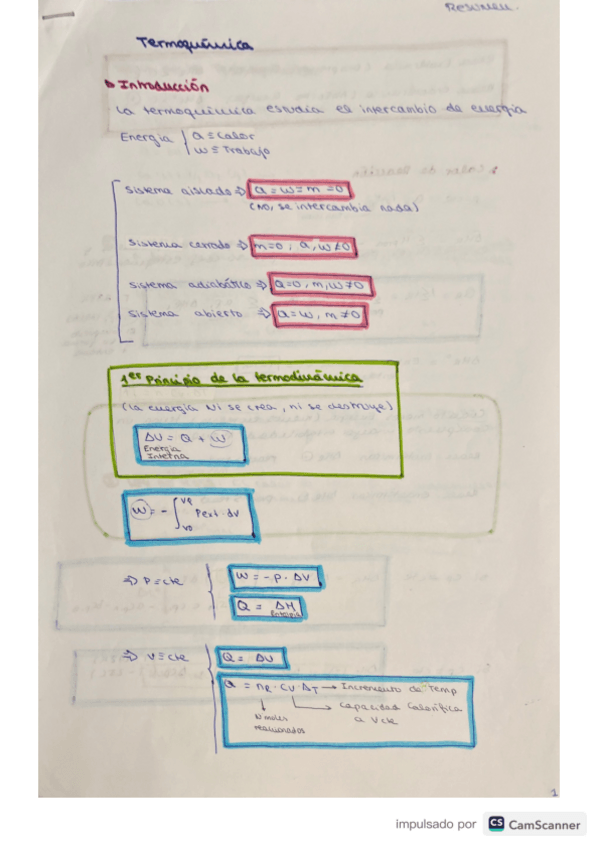 Resumen.
Termoquímica
Introducción
La termoquímica estudia el intercambio de energía
Energía { Q = Calor
W = Trabajo
Sistema aislado ⇒ Q = W = m = 0
(No, se intercambia nada)
Sistema cerrado ⇒ m=0, Q, W≠0
Sistema adiabático ⇒ Q=0, m, W≠0
Sistema abierto ⇒ Q=W, m≠0
1er Principio de la termodinámica
(La energía Ni se crea, ni se destruye)
ΔU = Q + W
Energía
Interna
W = - ∫ Pext. dv
⇒ P=cte
W = -P · ΔV
Q = ΔH
Entalpía
⇒ V=cte
Q = ΔU
Q = nR · CV · ΔT → Incremento de Temp
Capacidad Calorífica
a Vcte
Nº moles
reaccionados
1
impulsado por CS CamScanner